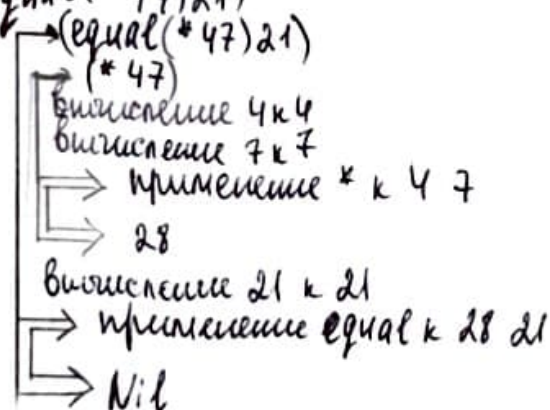 (equal(* 47)21)
(* 47)
вычисление 4 к 4
вычисление 7 к 7
применение * к 4 7
28
вычисление 21 к 21
применение equal к 28 21
Nil